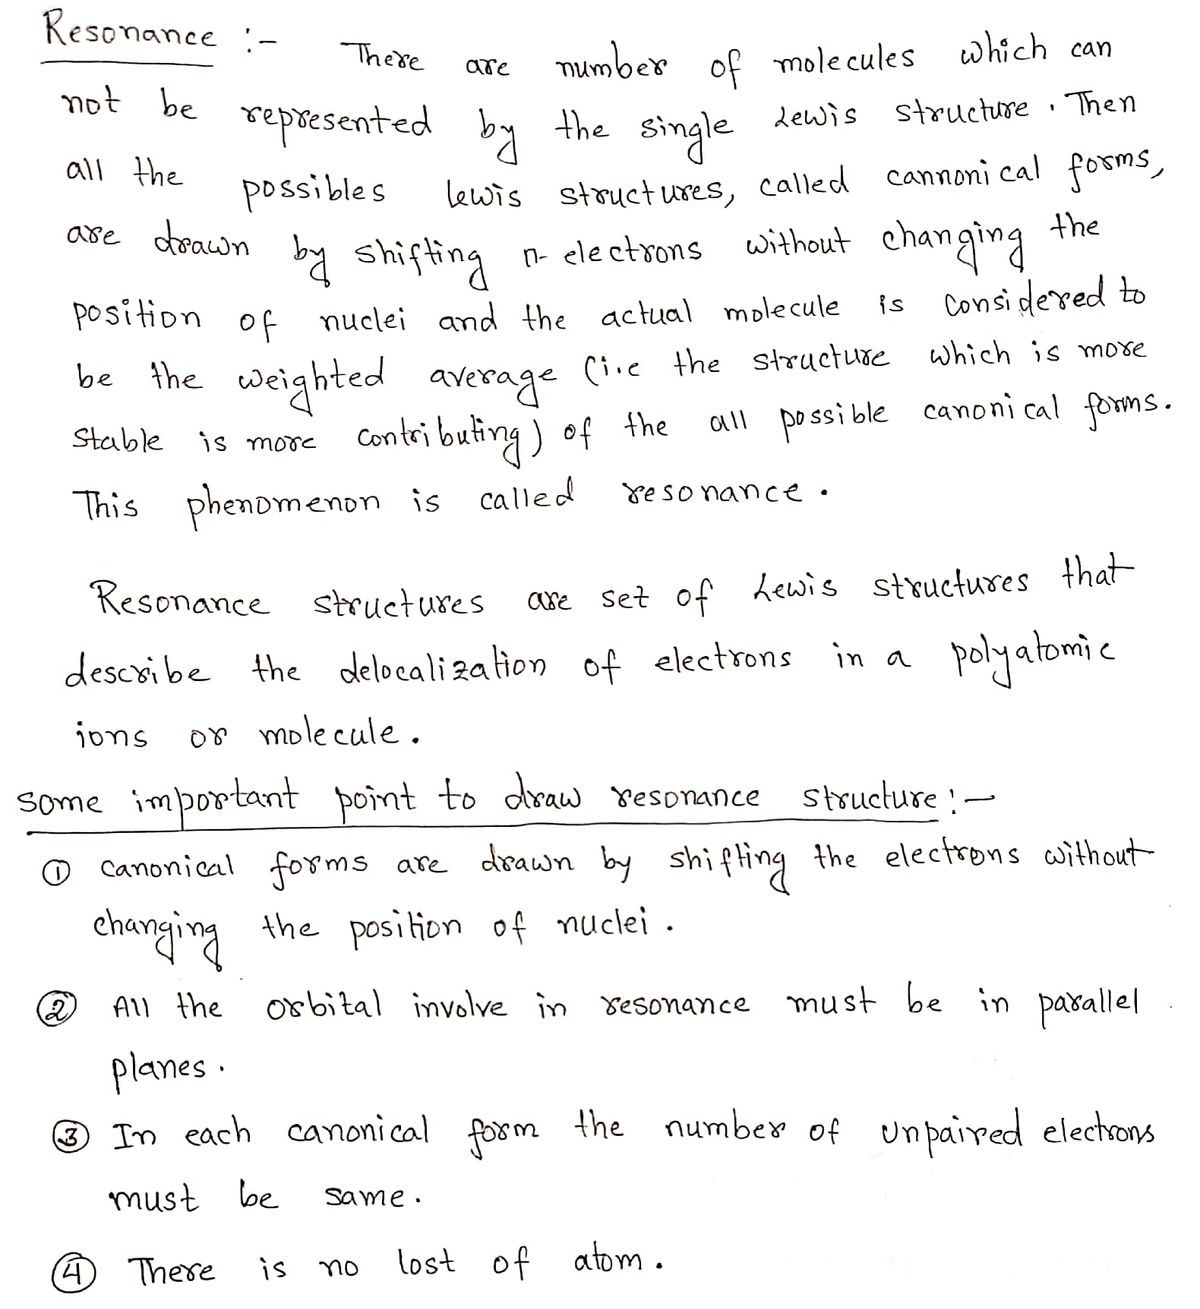 Resonance :- There are number of molecules which can
not be represented by the single Lewis structure. Then
all the possibles lewis structures, called cannonical forms,
are drawn by shifting π- electrons without changing the
position of nuclei and the actual molecule is considered to
be the weighted average (i.e the structure which is more
stable is more contributing) of the all possible canonical forms.
This phenomenon is called resonance.
Resonance structures are set of Lewis structures that
describe the delocalization of electrons in a polyatomic
ions or molecule.
some important point to draw resonance structure :-
① canonical forms are drawn by shifting the electrons without
changing the position of nuclei.
② All the orbital involve in resonance must be in parallel
planes.
③ In each canonical form the number of unpaired electrons
must be same.
④ There is no lost of atom.